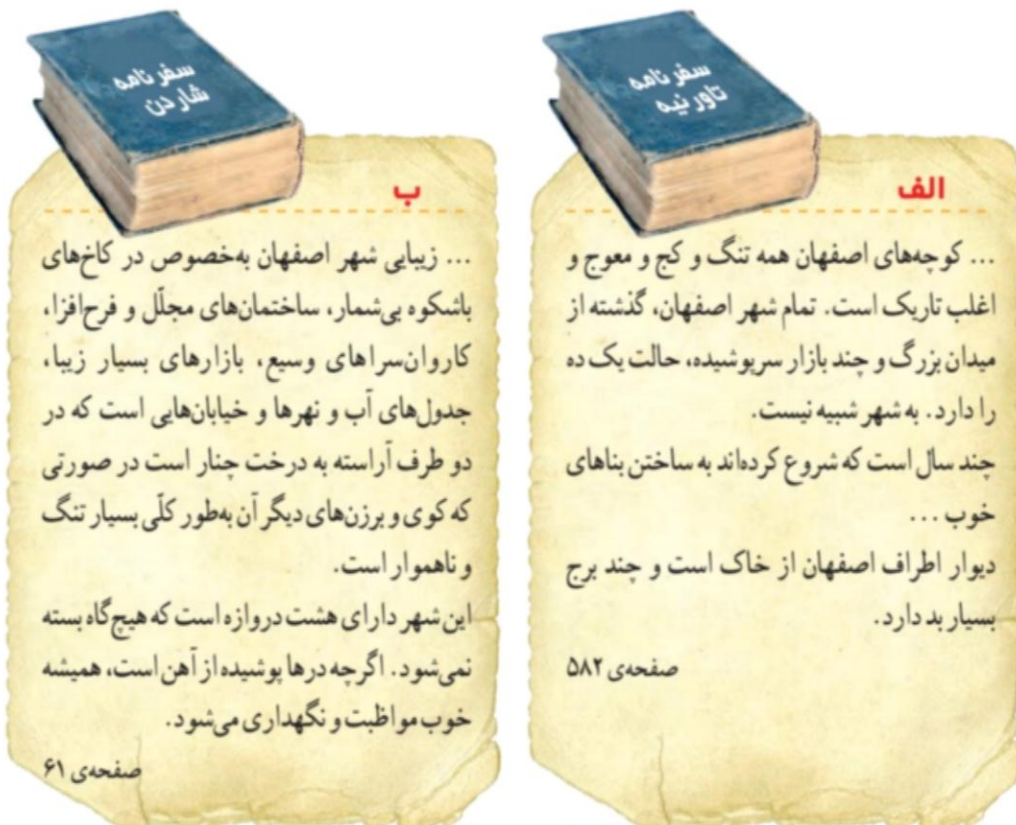 سفر نامه
تاورنیه
الف
... کوچه‌های اصفهان همه تنگ و کج و معوج و
اغلب تاریک است. تمام شهر اصفهان، گذشته از
میدان بزرگ و چند بازار سرپوشیده، حالت یک ده
را دارد. به شهر شبیه نیست.
چند سال است که شروع کرده‌اند به ساختن بناهای
خوب ...
دیوار اطراف اصفهان از خاک است و چند برج
بسیار بد دارد.
صفحه‌ی ۵۸۲
سفر نامه
شاردن
ب
... زیبایی شهر اصفهان به‌خصوص در کاخ‌های
باشکوه بی‌شمار، ساختمان‌های مجلّل و فرح‌افزا،
کاروان‌سراهای وسیع، بازارهای بسیار زیبا،
جدول‌های آب و نهرها و خیابان‌هایی است که در
دو طرف آراسته به درخت چنار است در صورتی
که کوی و برزن‌های دیگر آن به‌طور کلّی بسیار تنگ
و ناهموار است.
این شهر دارای هشت دروازه است که هیچ‌گاه بسته
نمی‌شود. اگرچه درها پوشیده از آهن است، همیشه
خوب مواظبت و نگهداری می‌شود.
صفحه‌ی ۶۱